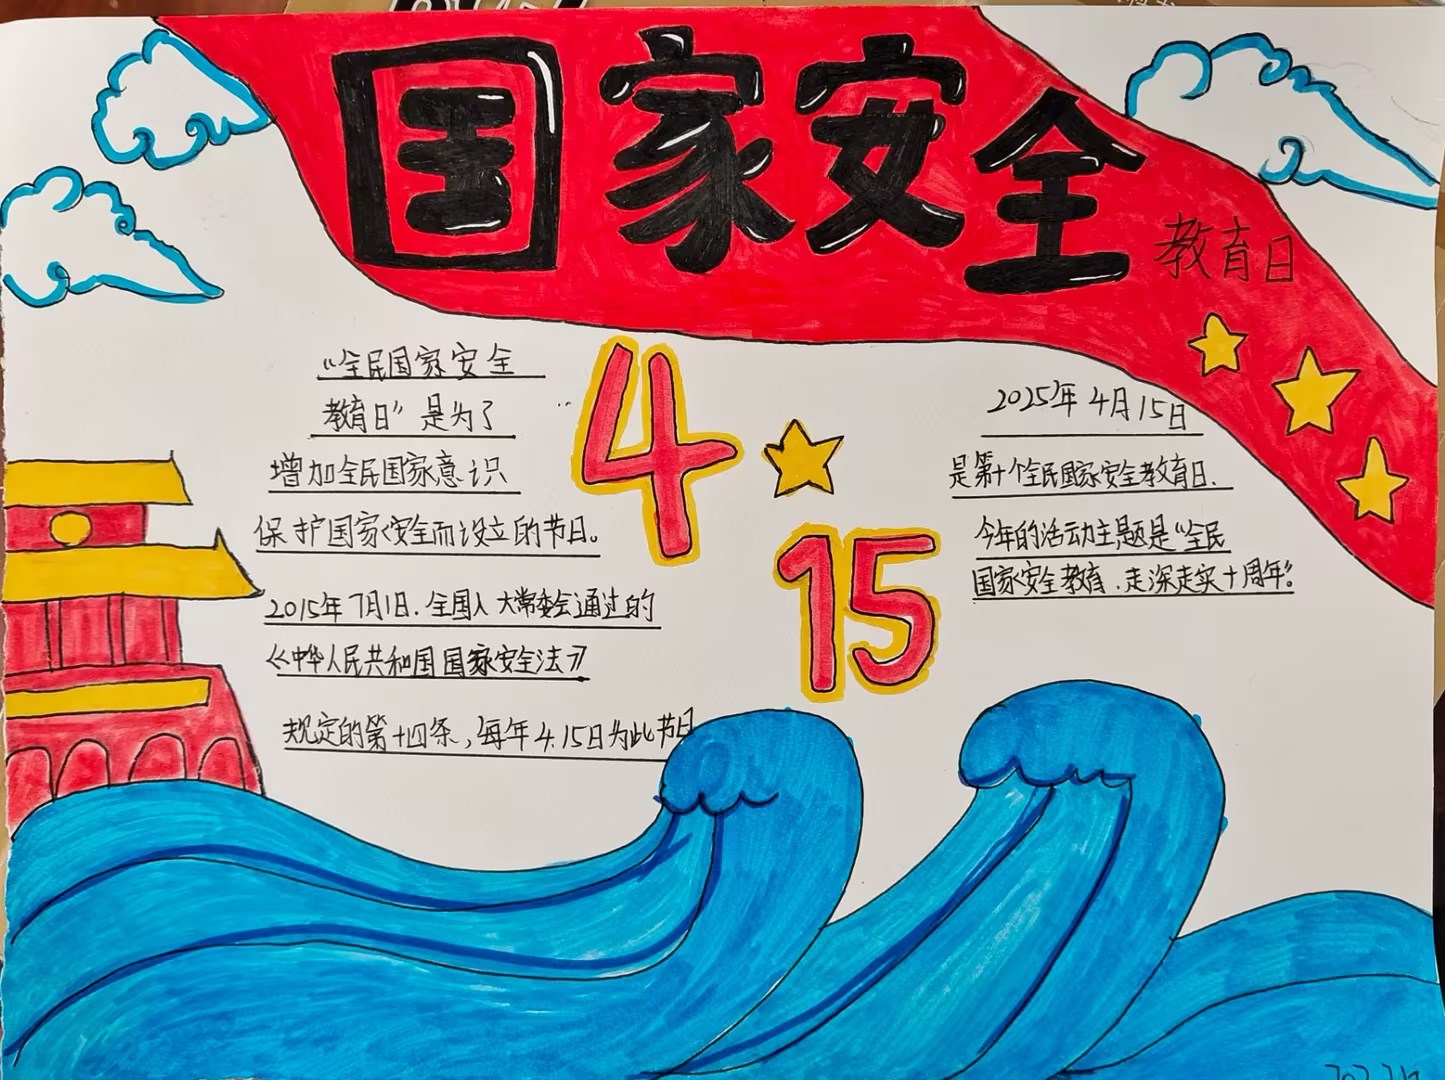 国家安全
教育日
“全民国家安全
教育日”是为了
增加全民国家意识
保护国家安全而设立的节日。
2015年7月1日.全国人大常委会通过的
《中华人民共和国国家安全法》
规定的第十四条,每年4.15日为此节日
4
15
2025年4月15日
是第十个全民国家安全教育日.
今年的活动主题是“全民
国家安全教育.走深走实十周年”。